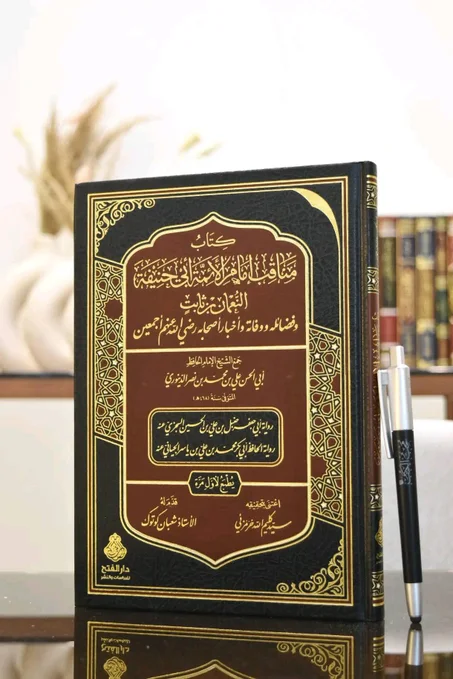 كتاب
مناقب إمام الأئمة أبي حنيفة
النعمان بن ثابت
وفضائله ووفاته وأخبار أصحابه رضي الله عنهم أجمعين
جمع الشيخ الإمام الحافظ
أبي الحسن علي بن محمد بن نصر الدينوري
المتوفى سنة (٤٦٨هـ)
رواية أبي جعفر حنبل بن علي بن الحسين السجزي عنه
رواية الحافظ أبي بكر محمد بن علي بن ياسر الجياني عنه
يطبع لأول مرة
اعتنى بتحقيقه
سيد كليم الله
قدم له
الأستاذ شعبان كوتوك
دار الفتح
للدراسات والنشر